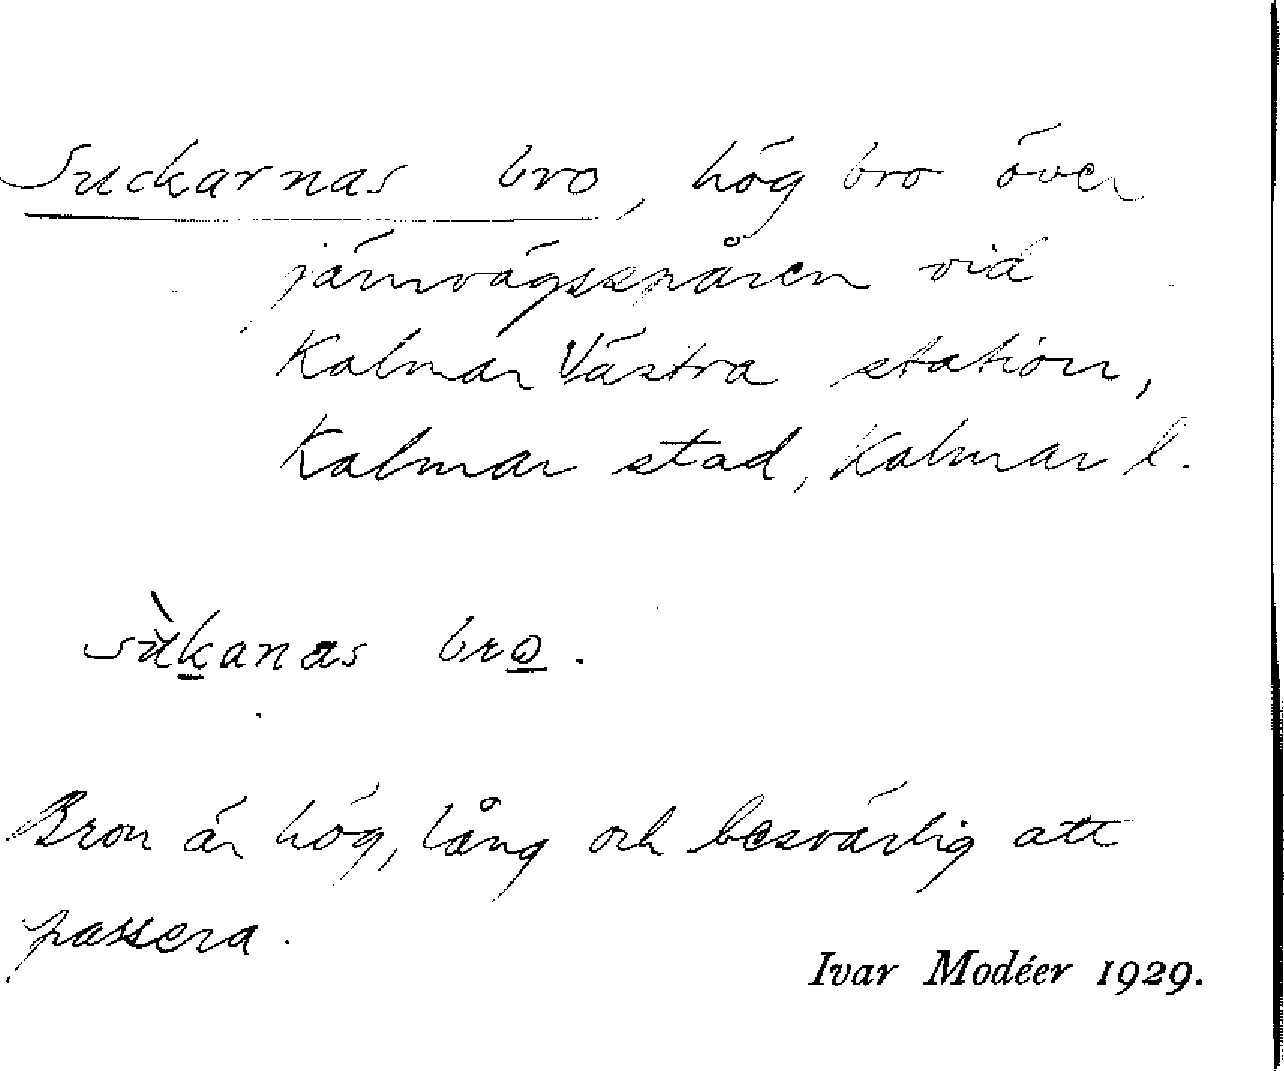 Suckarnas bro, hög bro över
järnvägsspåren vid
Kalmar Västra station,
Kalmar stad, Kalmar l.
sùkanas bro.
Bron är hög, lång och besvärlig att
passera.
Ivar Modéer 1929.